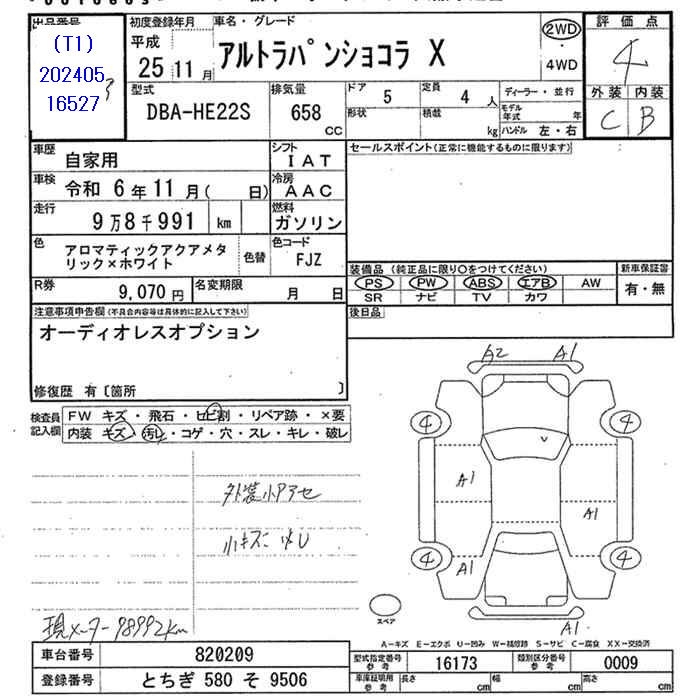 出品番号 初度登録年月 車名・グレード 評価点
(T1) 平成 アルトラパンショコラ X 2WD 4
202405 3 25 11月 ・ 4WD
16527 外装 内装
型式 排気量 ドア 定員 ディーラー・並行 C B
DBA-HE22S 658 CC 5 4人 モデル年式 年
形状 積載 kg ハンドル 左・右
車歴 自家用 シフト IAT セールスポイント(正常に機能するものに限ります)
車検 令和 6年11月( 日) 冷房 AAC
走行 9万8千991 km 燃料 ガソリン
色 アロマティックアクアメタ 色替 色コード FJZ
リック×ホワイト
装備品 (純正品に限り○をつけてください) 新車保証書
PS PW ABS エアB AW 有・無
SR ナビ TV カワ
R券 9,070円 名変期限 月 日
後日品
注意事項申告欄(不具合内容等は具体的に記入して下さい)
オーディオレスオプション
修復歴 有〔箇所 〕
A2 A1
検査員 FW キズ・飛石・ヒビ割・リペア跡・×要
記入欄 内装 キズ・汚レ・コゲ・穴・スレ・キレ・破レ
4 4
A1
外装小アセ
A1
小キズ
4 4
A1
スペア
現メーター98992km
A1
A-キズ E-エクボ U-凹み W-補修跡 S-サビ C-腐食 XX-交換済
車台番号 820209 型式指定番号 参考 16173 類別区分番号 参考 0009
登録番号 とちぎ 580 そ 9506 車庫証明用 参考 長さ cm 幅 cm 高さ cm